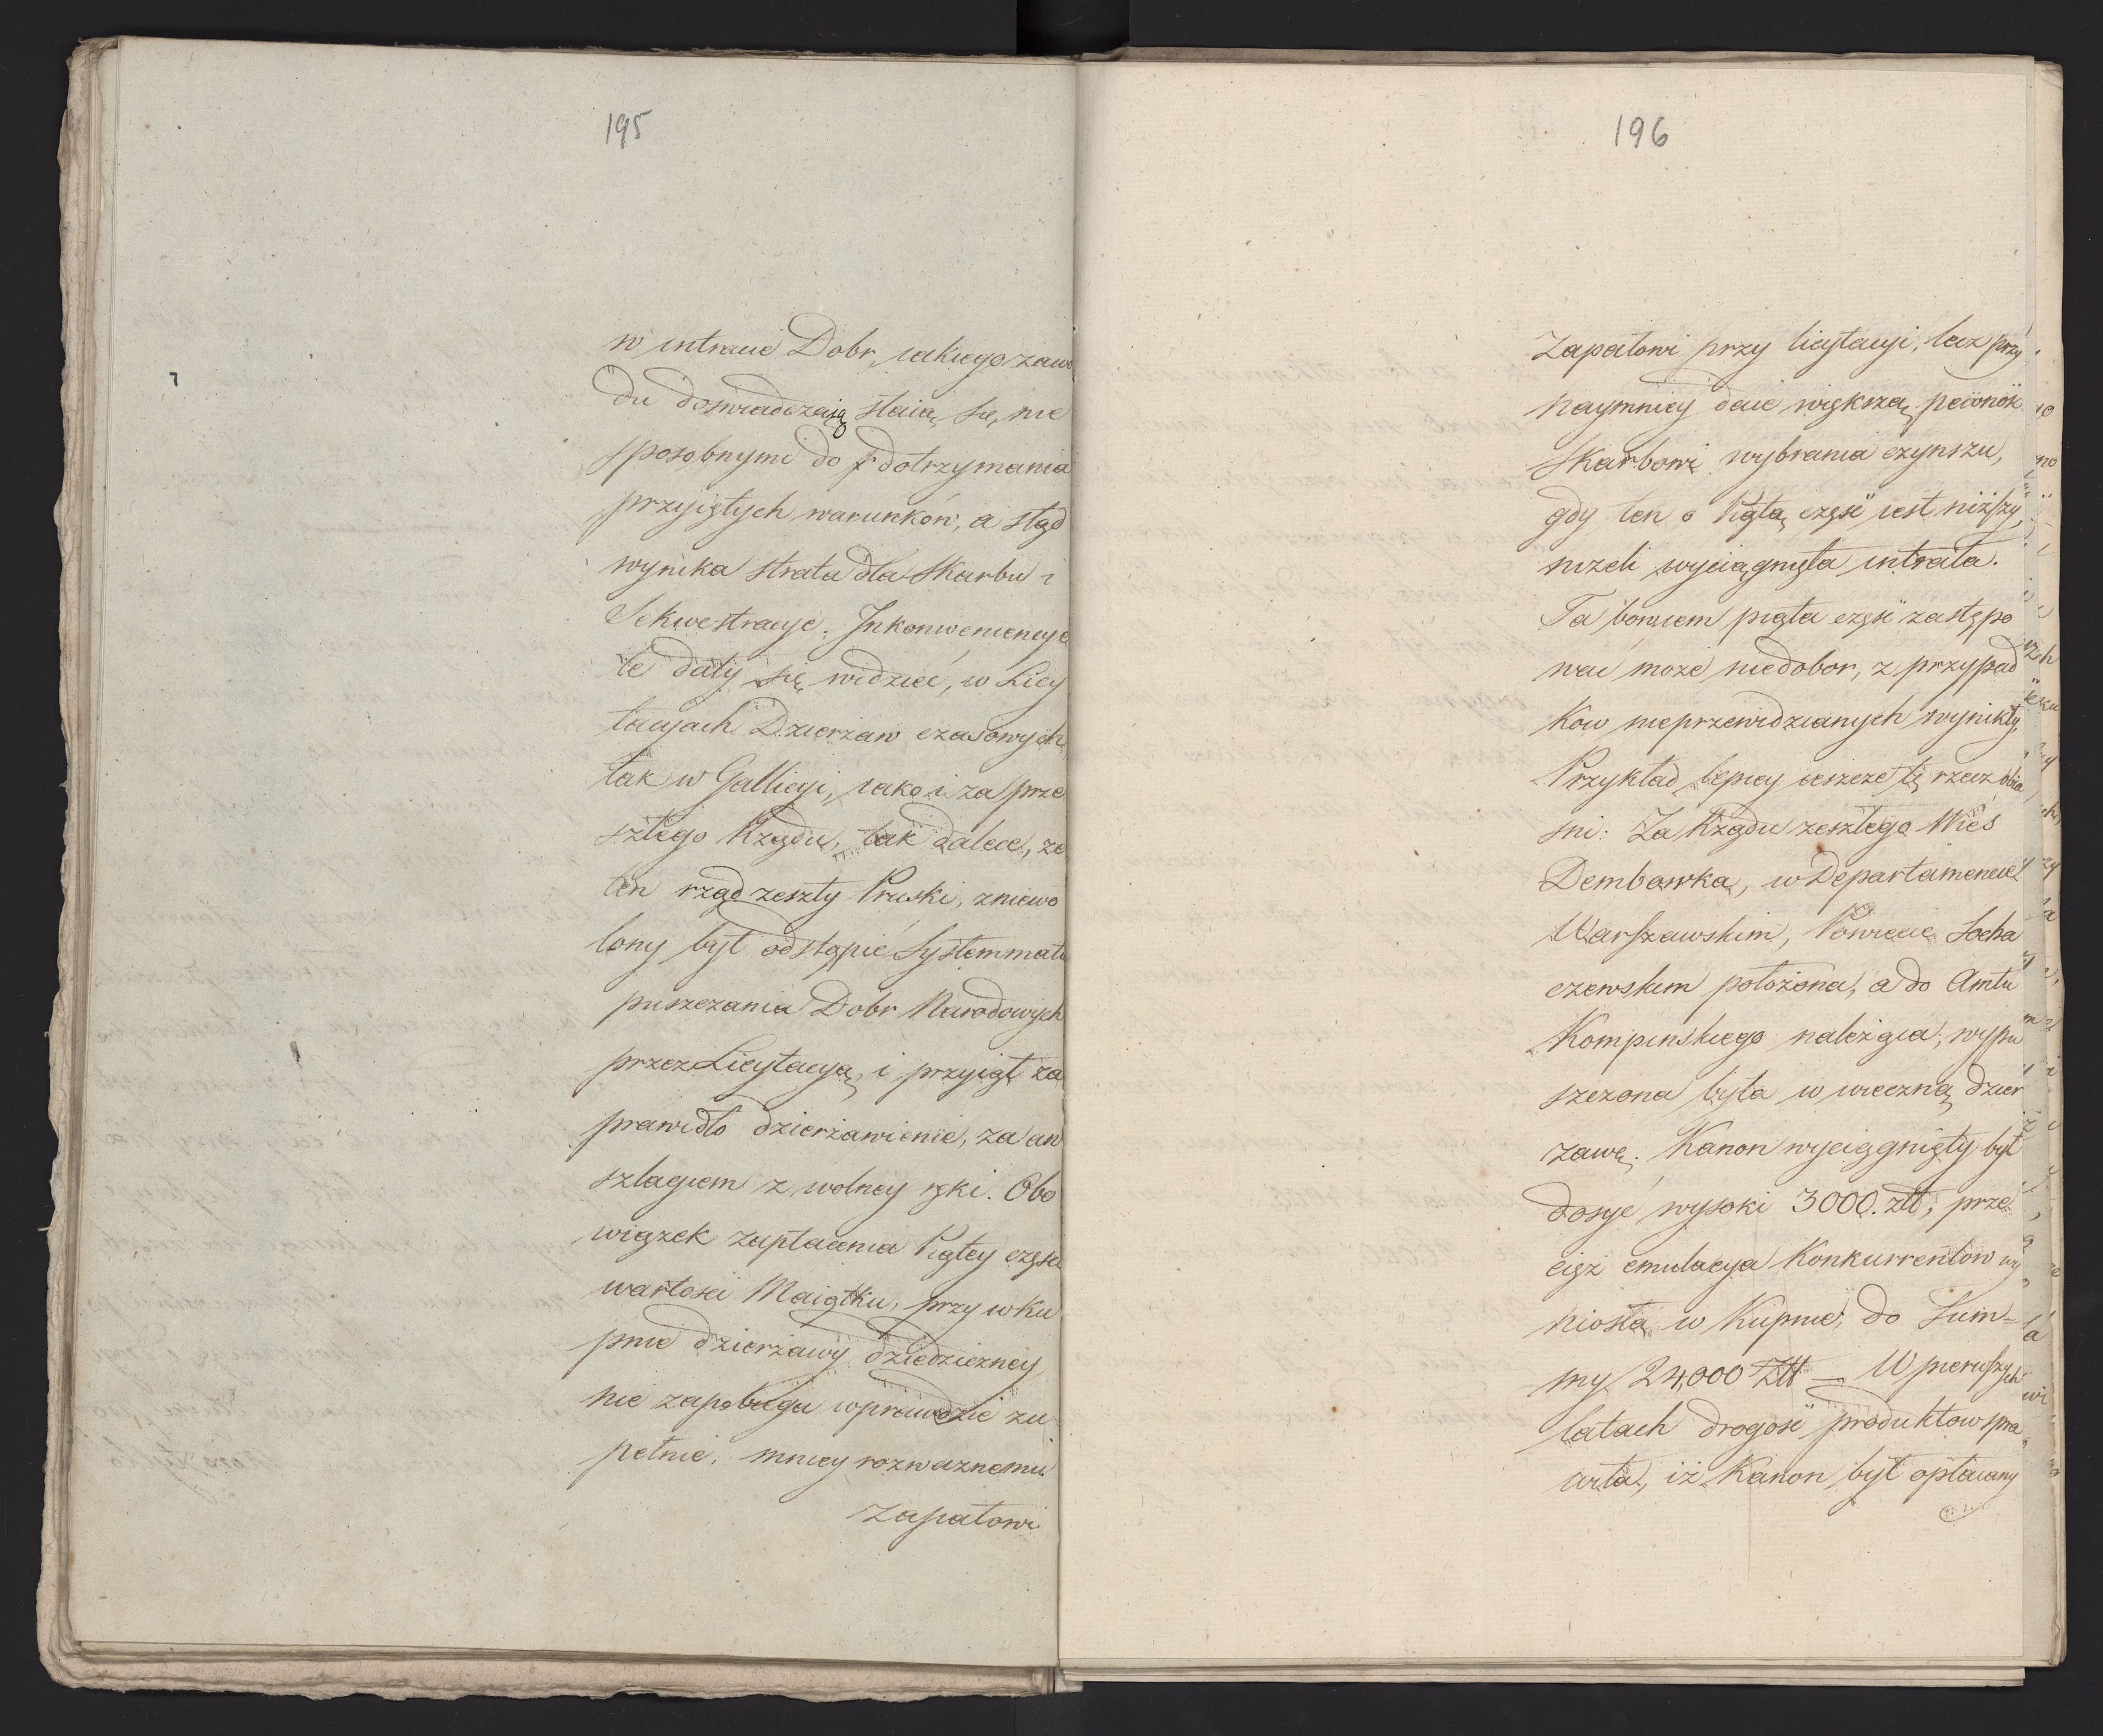 195
w intracie Dobr, iakiego zawo
du doswiadczaią staią się, nie
sposobnymi do dotrzymania
przyiętych warunków, a stąd
wynika strata dla Skarbu i
Sekwestracye. Inkonweniencye
te dały się widzieć, w Licy
tacyach Dzierzaw czasowych
tak w Gallicyi, iako i za prze
szłego Rządu, tak dalece, ze
ten rząd zeszły Pruski, zniewo
lony był odstąpić Systemmatu
puszczania Dobr Narodowych
przez Licytacyą, i przyiął za
prawidło dzierżawienie, za an
szlagiem z wolney ręki. Obo
wiązek zapłacenia Piątey częsci
wartosci Maiątku, przy wku
pnie dzierżawy dziedziczney,
nie zapobiega wprawdzie zu
pełnie, mniey rozwaznemu
zapałowi
196
Zapałowi przy licytacyi, lecz przy
naymniey daie większą pewność
Skarbowi wybrania czynszu,
gdy ten o Piątą część iest niższy,
nizeli wyciągnięta intrata.
Ta bowiem piąta część zastępo
wać może niedobor, z przypad
kow nieprzewidzianych wynikły,
Przykład lepiey ieszcze tę rzecz obia
sni: Za Rządu zeszłego Wieś
Dembowka, w Departamencie
Warszawskim, Powiecie Socha
czewskim położona, a do Amtu
Kompinskiego należąca, wypu
szczona była w wieczną dzier
zawę. Kanon wyciągnięty był
dosyć wysoki 3000. złł, prze
cięż emulacya Konkurrentow wy
niosła w Kupnie, do Sum=
my 24,000 Złł — W pierwszych
latach drogość produktow spra
wiła, iż Kanon był opłacany